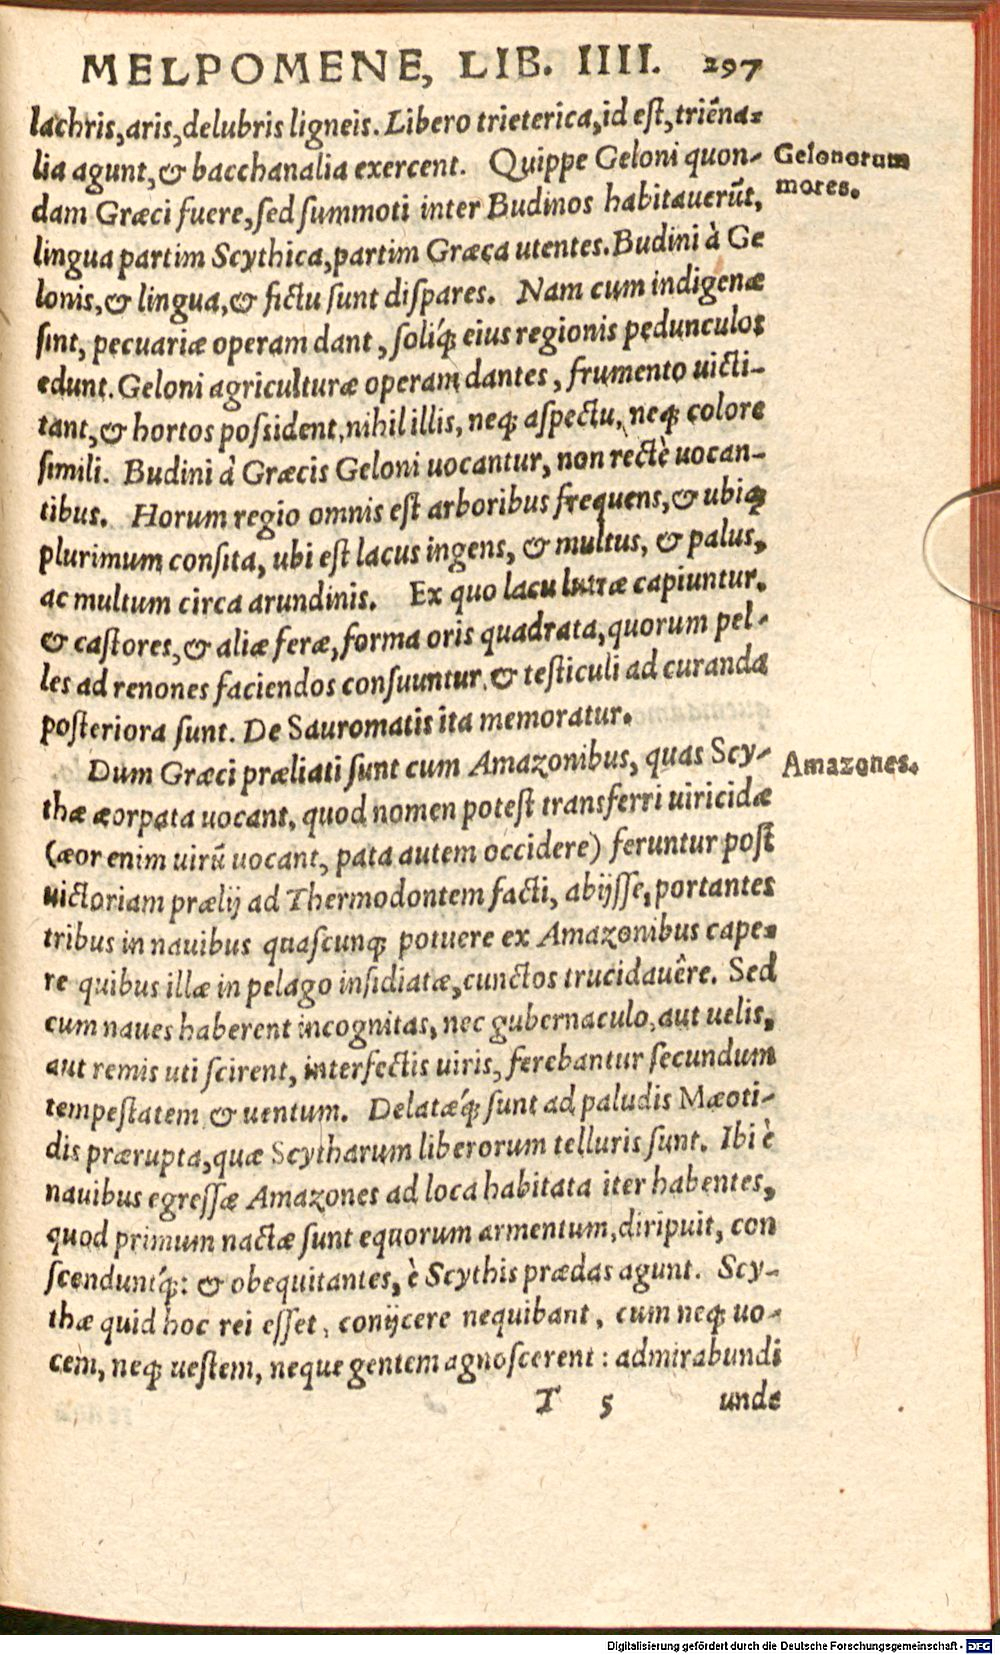 MELPOMENE, LIB. IIII. 297
lachris, aris, delubris ligneis. Libero trieterica, id eſt, triẽna-
lia agunt, & bacchanalia exercent. Quippe Geloni quon-
Gelonorum
mores.
dam Græci fuere, ſed ſummoti inter Budinos habitauerũt,
lingua partim Scythica, partim Græca utentes. Budini à Ge
lonis, & lingua, & fictu ſunt diſpares. Nam cum indigenæ
ſint, pecuariæ operam dant, ſoliq́; eius regionis pedunculos
edunt. Geloni agriculturæ operam dantes, frumento uicti-
tant, & hortos poſsident, nihil illis, neq; aſpectu, neq; colore
ſimili. Budini à Græcis Geloni uocantur, non rectè uocan-
tibus. Horum regio omnis eſt arboribus frequens, & ubiq;
plurimum conſita, ubi eſt lacus ingens, & multus, & palus,
ac multum circa arundinis. Ex quo lacu lutræ capiuntur.
& caſtores, & aliæ feræ, forma oris quadrata, quorum pel-
les ad renones faciendos conſuuntur. & teſticuli ad curanda
poſteriora ſunt. De Sauromatis ita memoratur.
Dum Græci præliati ſunt cum Amazonibus, quas Scy-
Amazones.
thæ æorpata uocant, quod nomen poteſt transferri uiricidæ
(æor enim uirũ uocant, pata autem occidere) feruntur poſt
uictoriam prælij ad Thermodontem facti, abijſſe, portantes
tribus in nauibus quaſcunq; potuere ex Amazonibus cape-
re quibus illæ in pelago inſidiatæ, cunctos trucidauêre. Sed
cum naues haberent incognitas, nec gubernaculo, aut uelis,
aut remis uti ſcirent, interfectis uiris, ferebantur ſecundum
tempeſtatem & uentum. Delatæq́; ſunt ad paludis Mæoti-
dis prærupta, quæ Scytharum liberorum telluris ſunt. Ibi è
nauibus egreſſæ Amazones ad loca habitata iter habentes,
quod primum nactæ ſunt equorum armentum, diripuit, con
ſcenduntq́;: & obequitantes, è Scythis prædas agunt. Scy-
thæ quid hoc rei eſſet, conijcere nequibant, cum neq; uo-
cem, neq; ueſtem, neque gentem agnoſcerent: admirabundi
T 5 unde
Digitalisierung gefördert durch die Deutsche Forschungsgemeinschaft - DFG